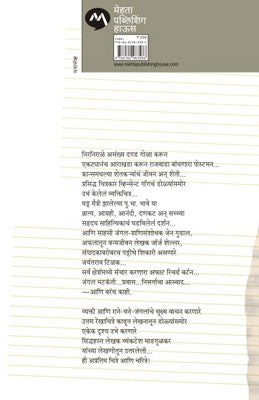 मेहता
पब्लिशिंग
हाऊस
www.mehtapublishinghouse.com
निरनिराळे असंख्य दगड गोळा करून
एकट्यानंच आराखडा करून राजवाडा बांधणारा पोस्टमन...
फ्रान्समधल्या शेतकऱ्यांचं जीवन अन् शेती...
प्रसिद्ध चित्रकार व्हिन्सेन्ट गॉगचं डोळ्यांसमोर
उभं केलेलं व्यक्तिचित्र...
घट्ट मैत्री झालेल्या पु. भा. भावे या
व्रात्य, आग्रही, आनंदी, दणकट अन् सच्च्या
सहृदय साहित्यिकाचं घडविलेलं दर्शन...
आणि साहसी जंगल-प्राणिसंशोधक जेन गुडाल,
अफलातून वन्यजीवन लेखक जॉर्ज शेल्लर,
संपादकाबरोबरच पट्टीचे शिकारी असणारे
जयंतराव टिळक...
सर्व क्षेत्रांमध्ये संचार करणारा अफाट रिचर्ड बर्टन...
जंगल भटकंती...प्रवास...निसर्गाचा आस्वाद...
—आणि बरंच काही.
व्यक्ती आणि राने-वने-जंगलांचे सूक्ष्म वाचन करणारे
उत्तम रेखाचित्रे काढून लेखनातून डोळ्यांसमोर
एकेक दृश्य उभे करणारे
सिद्धहस्त लेखक व्यंकटेश माडगूळकर
यांच्या लेखणीतून उतरलेली...
ही अप्रतिम चित्रे आणि चरित्रे!